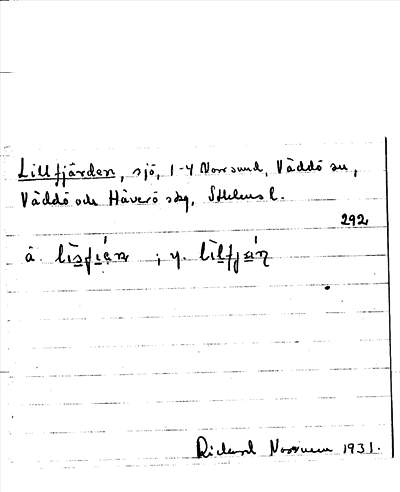 Lillfjärden, sjö, 1-4 Norrsund, Väddö sn,
Väddö och Häverö skg, Sthlms l.
292
ä. ; y.
Rickard 1931.